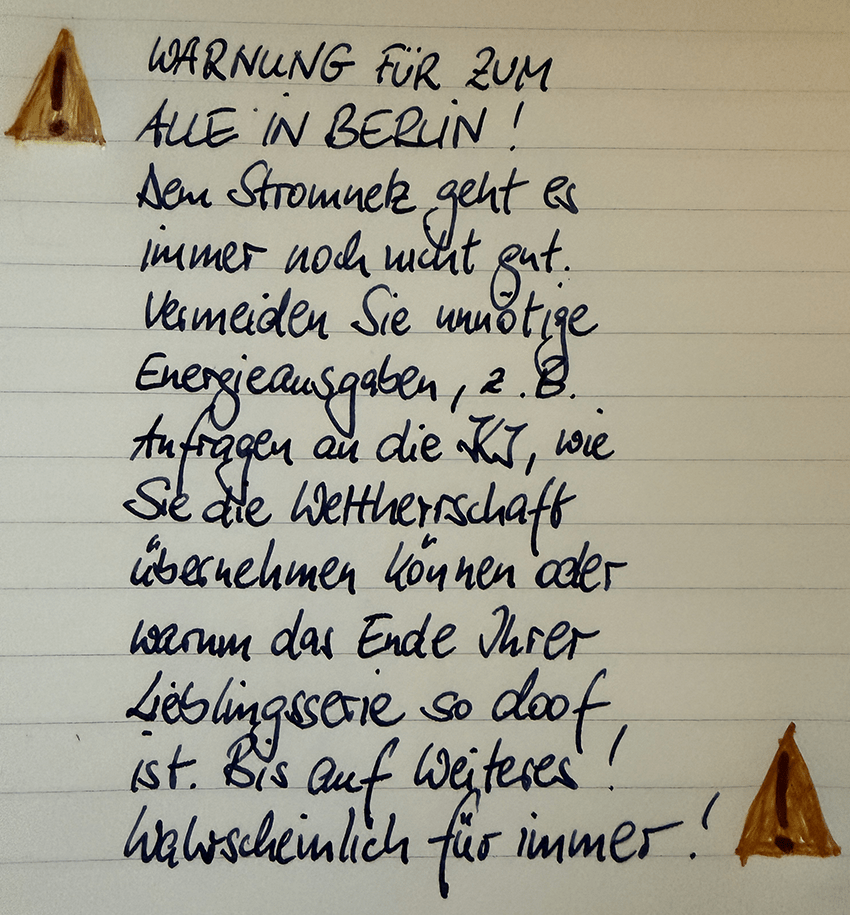 WARNUNG FÜR ZUM
ALLE IN BERLIN!
Dem Stromnetz geht es
immer noch nicht gut.
Vermeiden Sie unnötige
Energieausgaben, z.B.
Anfragen an die KI, wie
Sie die Weltherrschaft
übernehmen können oder
warum das Ende Ihrer
Lieblingsserie so doof
ist. Bis auf Weiteres!
Wahrscheinlich für immer!